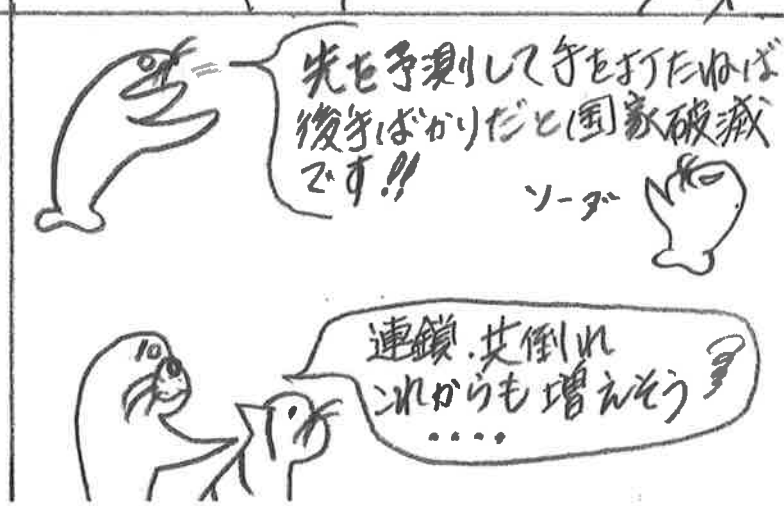 先を予測して手を打たねば
後手ばかりだと国家破滅
です!!
ソーダ
連鎖.共倒れ
これからも増えそう
....